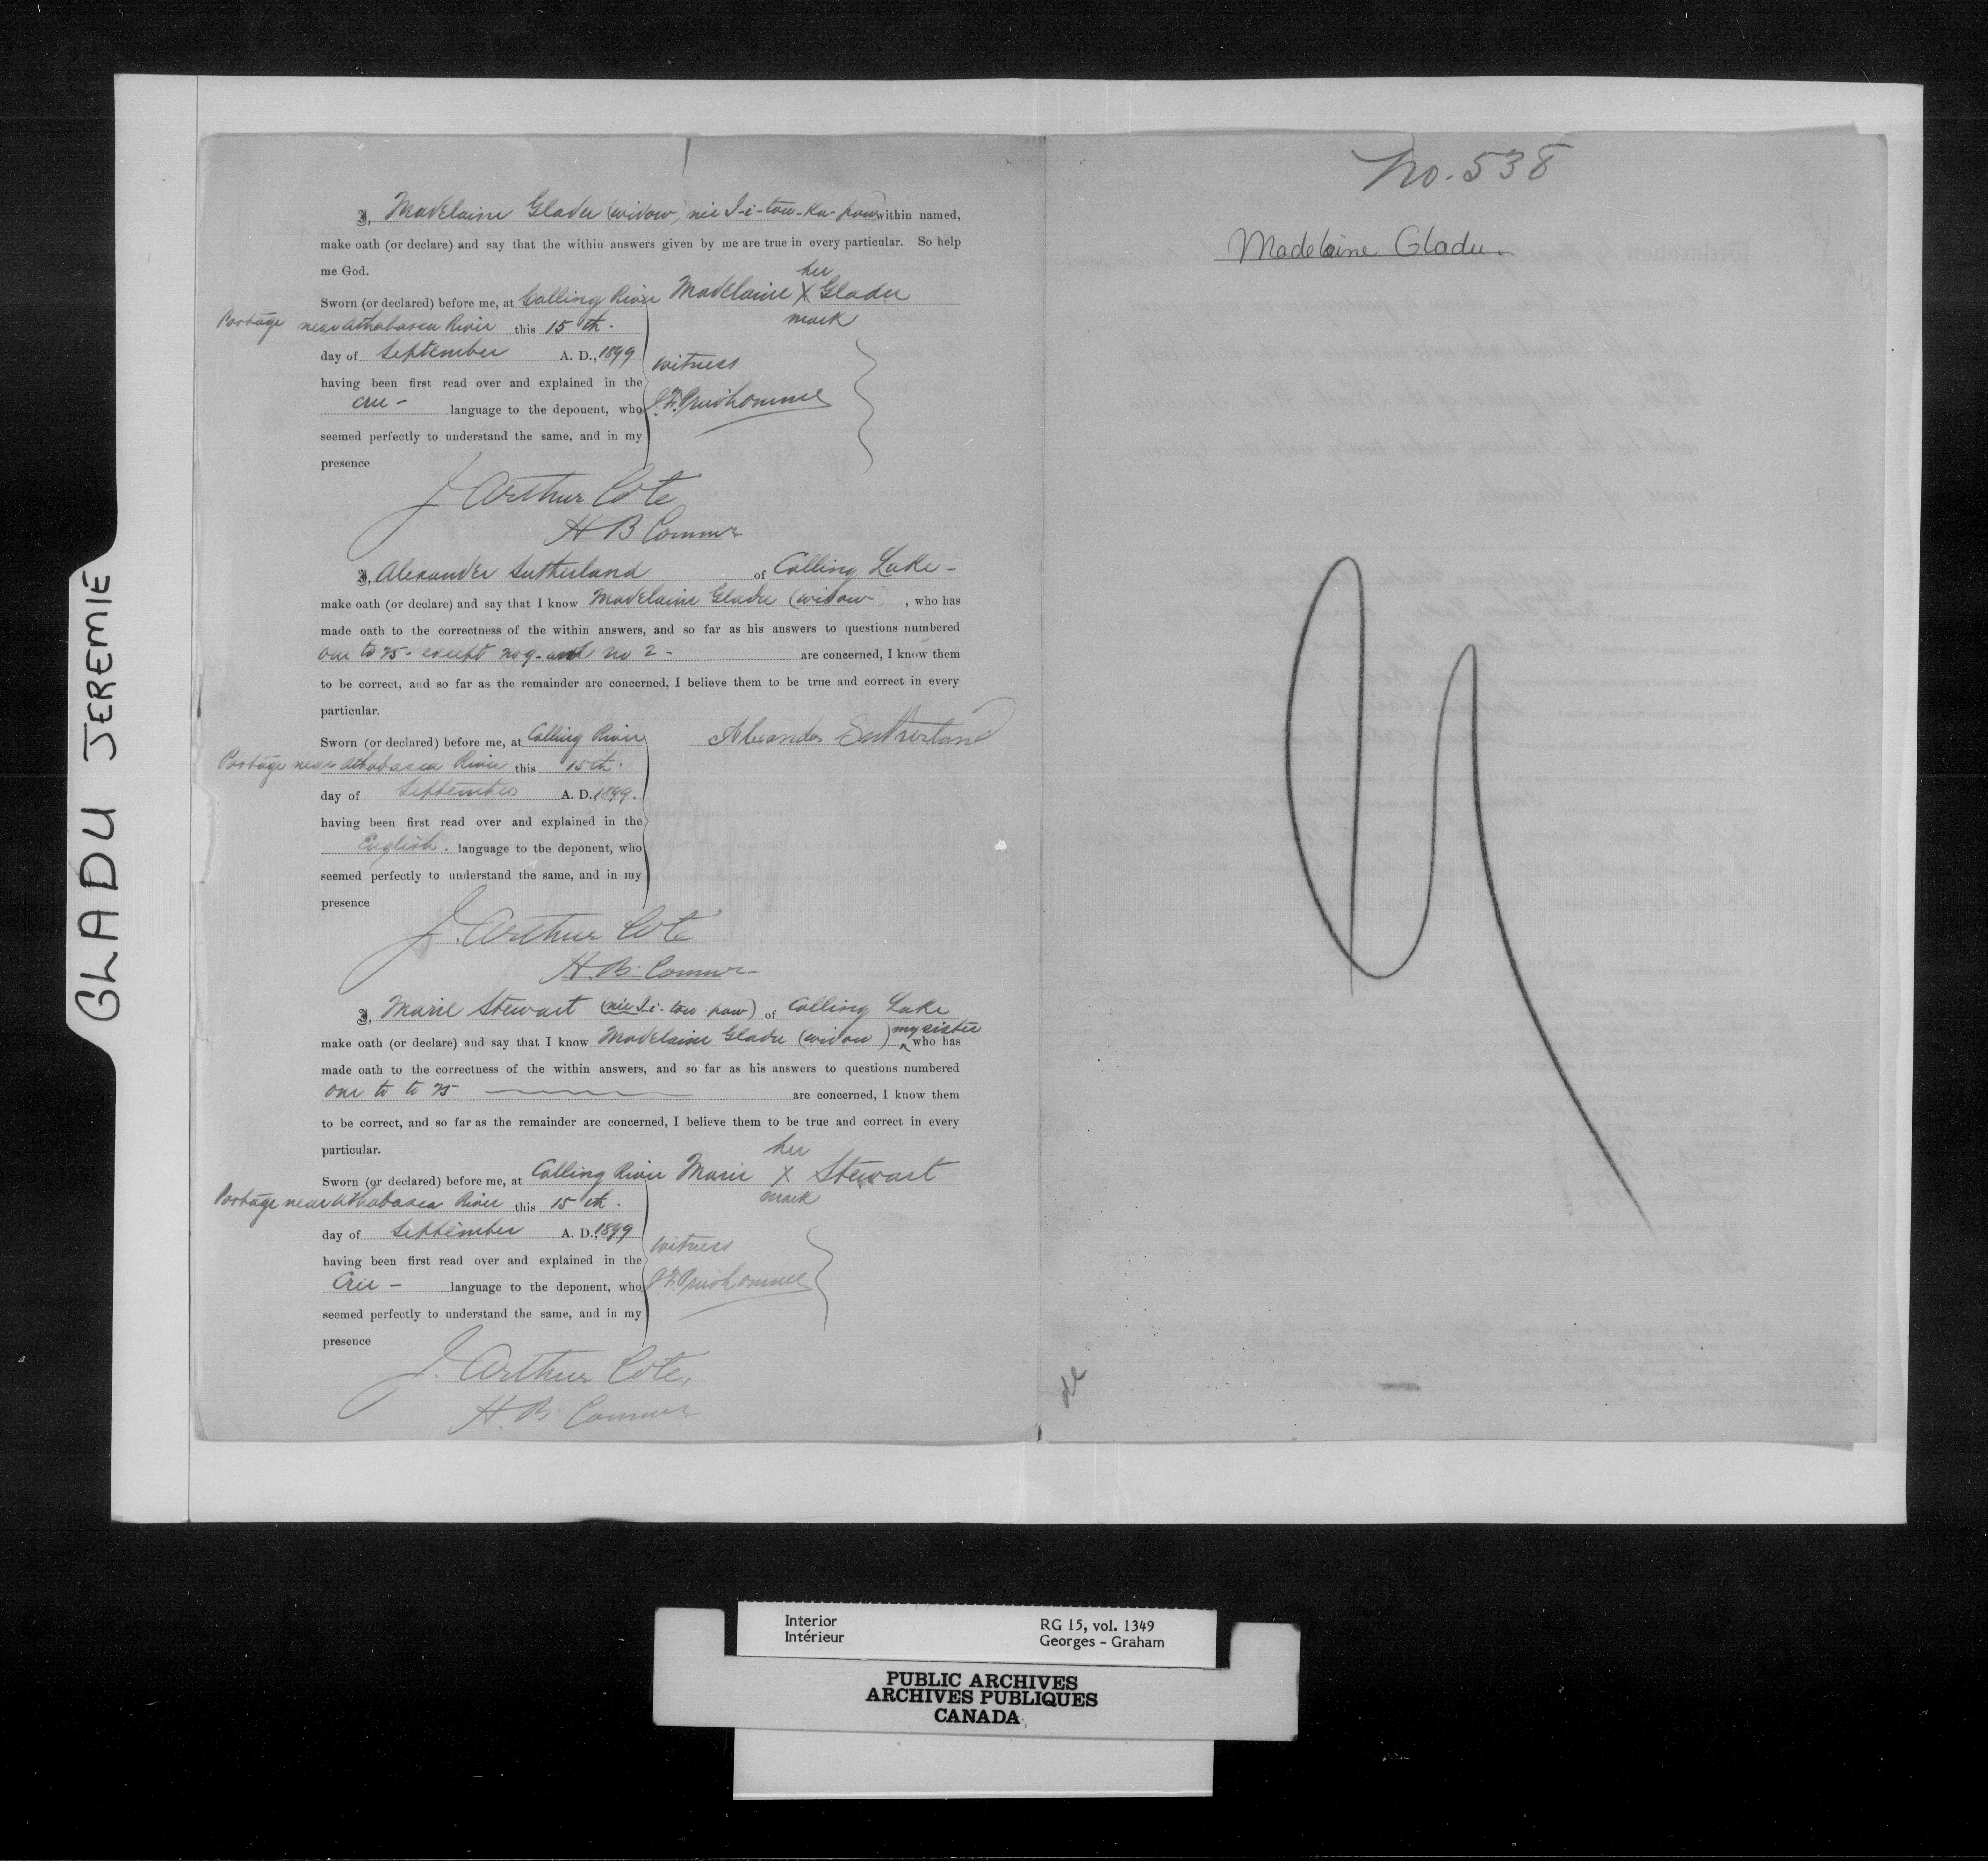 I, Madelaine Gladu (widow, née I-i-tow-Ka-paw) within named,
make oath (or declare) and say that the within answers given by me are true in every particular. So help
me God.
her
Sworn (or declared) before me, at Calling River Madelaine X Gladu
mark
Portage near Athabasca River this 15th.
day of September A. D., 1899
witness
having been first read over and explained in the
Cree - language to the deponent, who J.F. Prudhomme
seemed perfectly to understand the same, and in my
presence
J Arthur Coté
H B Commr
I, Alexander Sutherland of Calling Lake -
make oath (or declare) and say that I know Madelaine Gladu (widow), who has
made oath to the correctness of the within answers, and so far as his answers to questions numbered
one to 15 - except no 9 - and no 2 - are concerned, I know them
to be correct, and so far as the remainder are concerned, I believe them to be true and correct in every
particular.
Sworn (or declared) before me, at Calling River Alexander Sutherland
Portage near Athabasca River this 15th.
day of September A. D. 1899.
having been first read over and explained in the
English. language to the deponent, who
seemed perfectly to understand the same, and in my
presence
J. Arthur Coté
H. B. Commr
I, Marie Stewart (née I-i-tow-paw) of Calling Lake
make oath (or declare) and say that I know Madelaine Gladu (widow) my sister who has
made oath to the correctness of the within answers, and so far as his answers to questions numbered
one to to 15 are concerned, I know them
to be correct, and so far as the remainder are concerned, I believe them to be true and correct in every
particular.
her
Sworn (or declared) before me, at Calling River Marie X Stewart
mark
Portage near Athabasca River this 15th.
day of September A. D. 1899
witness
having been first read over and explained in the
Cree - language to the deponent, who J.F. Prudhomme
seemed perfectly to understand the same, and in my
presence
J. Arthur Coté.
H. B. Commr
No. 538
Madelaine Gladu.
GLADU JEREMIE
Interior
Intérieur
RG 15, vol. 1349
Georges - Graham
PUBLIC ARCHIVES
ARCHIVES PUBLIQUES
CANADA